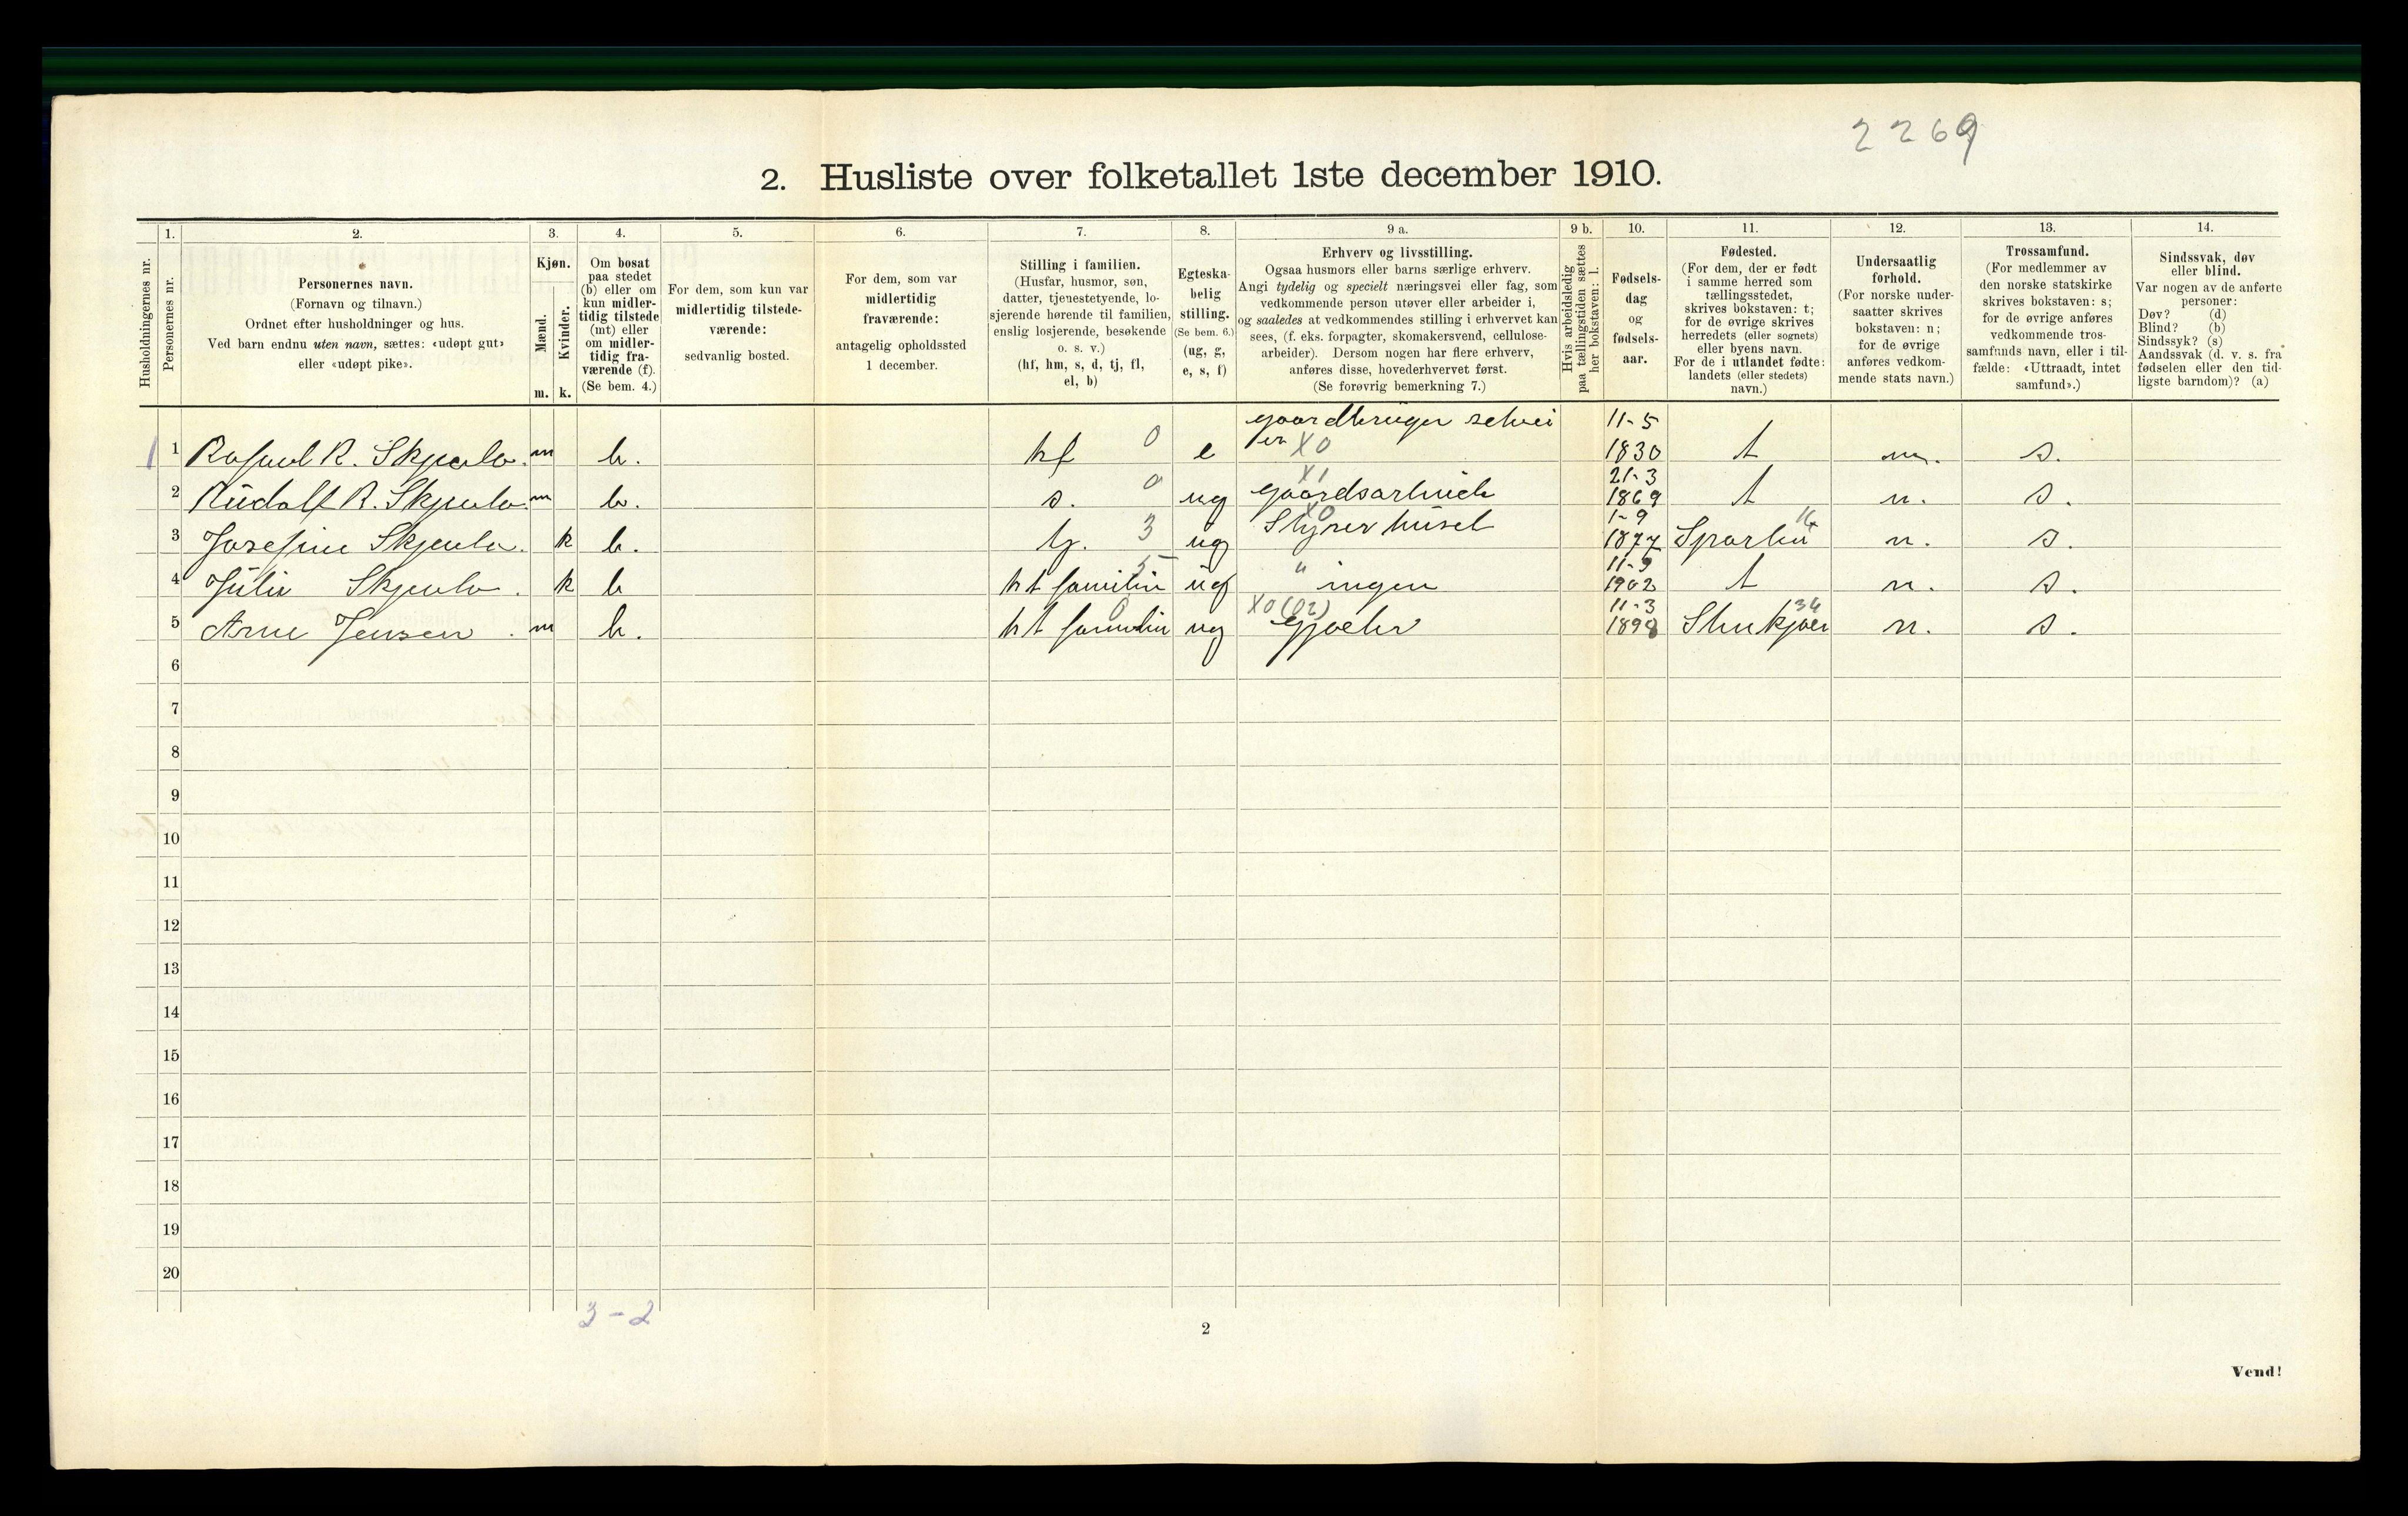 2269
2. Husliste over folketallet 1ste december 1910.
Husholdningernes nr.
1.
Personernes nr.
2.
Personernes navn.
(Fornavn og tilnavn.)
Ordnet efter husholdninger og hus.
Ved barn endnu uten navn, sættes: «udøpt gut»
eller «udøpt pike».
3.
Kjøn.
Mænd.
Kvinder.
m. k.
4.
Om bosat
paa stedet
(b) eller om
kun midler-
tidig tilstede
(mt) eller
om midler-
tidig fra-
værende (f).
(Se bem. 4.)
5.
For dem, som kun var
midlertidig tilstede-
værende:
sedvanlig bosted.
6.
For dem, som var
midlertidig
fraværende:
antagelig opholdssted
1 december.
7.
Stilling i familien.
(Husfar, husmor, søn,
datter, tjenestetyende, lo-
sjerende hørende til familien,
enslig losjerende, besøkende
o. s. v.)
(hf, hm, s, d, tj, fl,
el, b)
8.
Egteska-
belig
stilling.
(Se bem. 6.)
(ug, g,
e, s, f)
9 a.
Erhverv og livsstilling.
Ogsaa husmors eller barns særlige erhverv.
Angi tydelig og specielt næringsvei eller fag, som
vedkommende person utøver eller arbeider i,
og saaledes at vedkommendes stilling i erhvervet kan
sees, (f. eks. forpagter, skomakersvend, cellulose-
arbeider). Dersom nogen har flere erhverv,
anføres disse, hovederhvervet først.
(Se forøvrig bemerkning 7.)
9 b.
Hvis arbeidsledig
paa tællingstiden sættes
her bokstaven: l.
10.
Fødsels-
dag
og
fødsels-
aar.
11.
Fødested.
(For dem, der er født
i samme herred som
tællingsstedet,
skrives bokstaven: t;
for de øvrige skrives
herredets (eller sognets)
eller byens navn.
For de i utlandet fødte:
landets (eller stedets)
navn.)
12.
Undersaatlig
forhold.
(For norske under-
saatter skrives
bokstaven: n;
for de øvrige
anføres vedkom-
mende stats navn.)
13.
Trossamfund.
(For medlemmer av
den norske statskirke
skrives bokstaven: s;
for de øvrige anføres
vedkommende tros-
samfunds navn, eller i til-
fælde: «Uttraadt, intet
samfund».)
14.
Sindssvak, døv
eller blind.
Var nogen av de anførte
personer:
Døv? (d)
Blind? (b)
Sindssyk? (s)
Aandssvak (d. v. s. fra
fødselen eller den tid-
ligste barndom)? (a)
1 1 R. Skjerla. m b. hf 0 e gaardbruger selvei er X0 11-5 1830 t n. s.
2 Rudolf R. Skjerla. m b. s. 0 ug gaardsarbeide X1 21-3 1869 t n. s.
3 Josefine Skjerla. k b. tj. 3 ug Styrer huset X0 1-9 1877 Sparbu n. s.
4 Julie Skjerla. k b h t familin 5 ug " ingen 11-9 1902 t n. s.
5 Arne Jensen. m b. h t familin 0 ug X0 (02) Gjæter 11-3 1898 Stenkjær 34 n. s.
6
7
8
9
10
11
12
13
14
15
16
17
18
19
20
3-2
2
Vend!